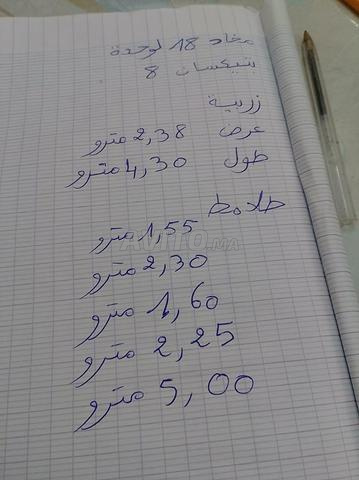 مخاد 18 لوحدة
بنيكسات 8
زربية
عرض 2,38 مترو
طول 4,30 مترو
طلامط
1,55 مترو
2,30 مترو
1,60 مترو
2,25 مترو
5,00 مترو
AVITO.MA